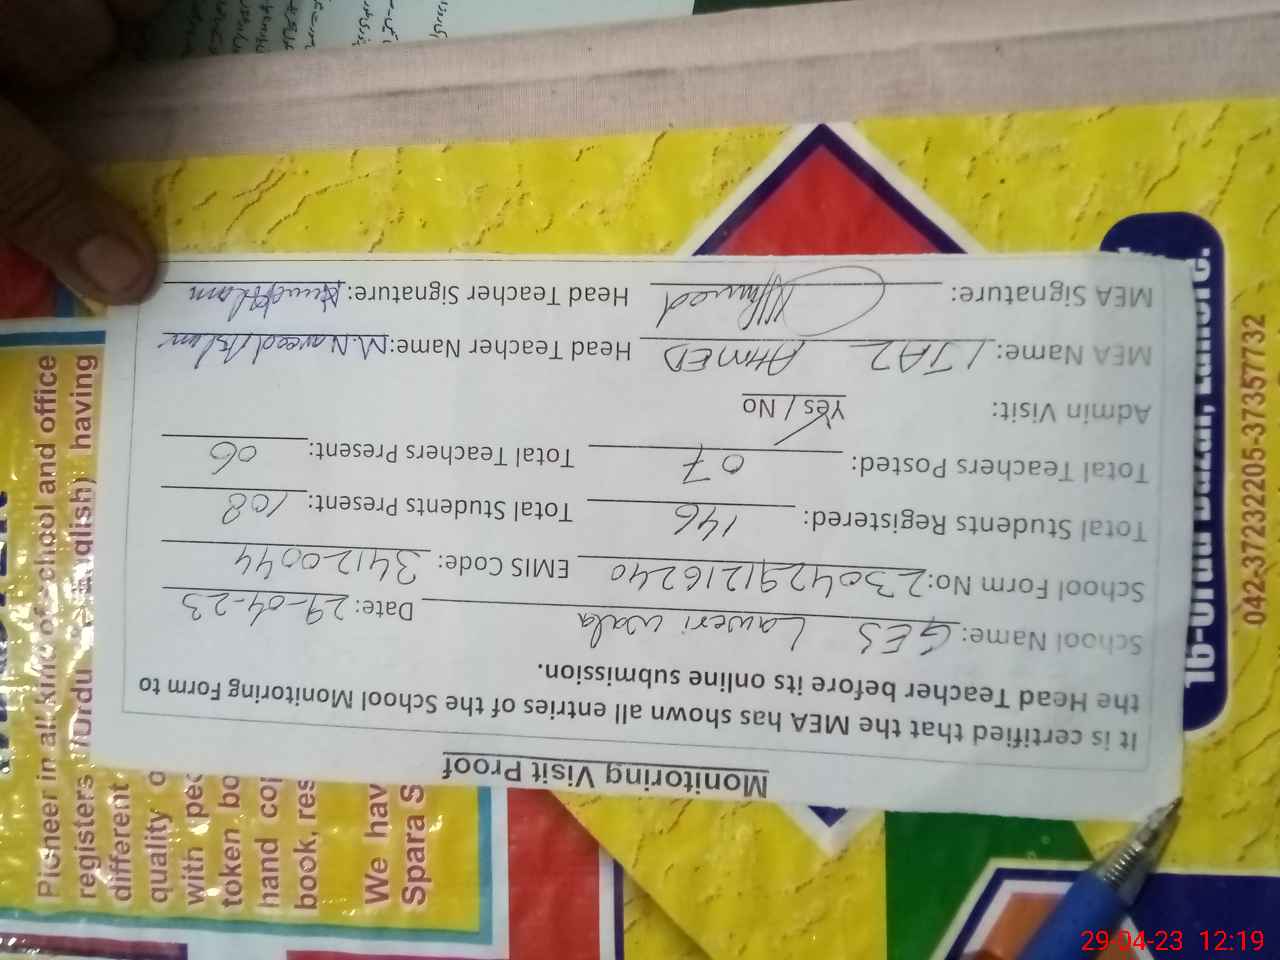 Monitoring Visit Proof
It is certified that the MEA has shown all entries of the School Monitoring Form to
the Head Teacher before its online submission.
School Name: GES Laweri wala Date: 29-04-23
School Form No: 2304291216240 EMIS Code: 34120044
Total Students Registered: 146 Total Students Present: 108
Total Teachers Posted: 07 Total Teachers Present: 06
Admin Visit: Yes / No
MEA Name: IJAZ AHMED Head Teacher Name: M. Naveed Aslam
MEA Signature: Head Teacher Signature:
Pioneer in all kind of school and office
registers having
different
quality
with
token
hand
book,
We hav
Spara S
16-Urdu Bazar, Lahore.
042-37232205-37357732
29-04-23 12:19